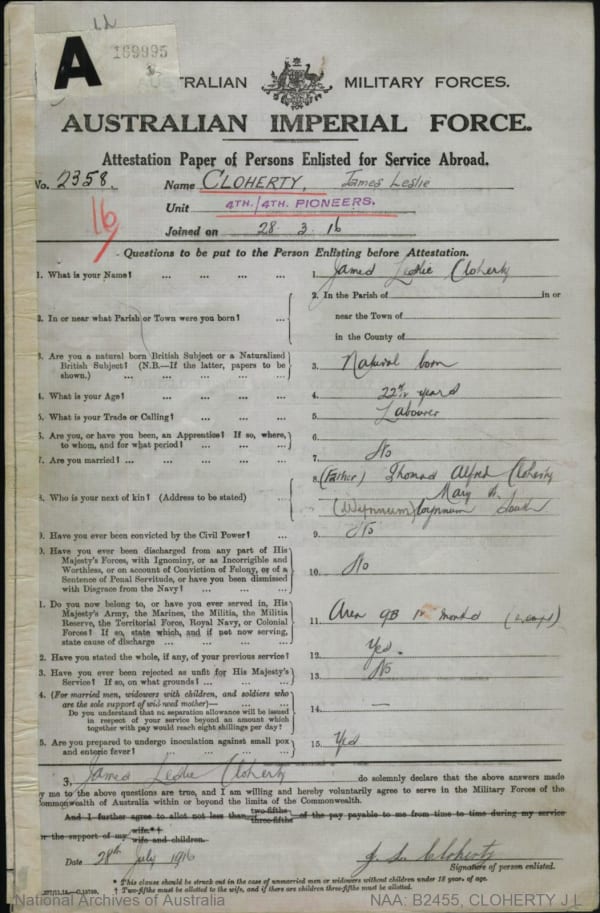 A
169995
AUSTRALIAN MILITARY FORCES.
AUSTRALIAN IMPERIAL FORCE.
Attestation Paper of Persons Enlisted for Service Abroad.
No. 2358. Name CLOHERTY, James Leslie
16
Unit 4TH./4TH. PIONEERS.
Joined on 28 3 16
Questions to be put to the Person Enlisting before Attestation.
1. What is your Name? ... ... ... ... 1. James Leslie Cloherty
2. In or near what Parish or Town were you born? ... 2. In the Parish of in or
near the Town of
in the County of
3. Are you a natural born British Subject or a Naturalized
British Subject? (N.B.—If the latter, papers to be
shown.) ... ... ... ... ... 3. Natural born
4. What is your Age? ... ... ... ... 4. 22 years
5. What is your Trade or Calling? ... ... ... 5. Labourer
6. Are you, or have you been, an Apprentice? If so, where,
to whom, and for what period? ... ... ... 6.
7. Are you married? ... ... ... ... ... 7. No
8. Who is your next of kin? (Address to be stated) ... 8. (Father) Thomas Alfred Cloherty
Mary St.
(Wynnum) Wynnum South
9. Have you ever been convicted by the Civil Power? ... 9. No
0. Have you ever been discharged from any part of His
Majesty's Forces, with Ignominy, or as Incorrigible and
Worthless, or on account of Conviction of Felony, or of a
Sentence of Penal Servitude, or have you been dismissed
with Disgrace from the Navy? ... ... ... 10. No
1. Do you now belong to, or have you ever served in, His
Majesty's Army, the Marines, the Militia, the Militia
Reserve, the Territorial Force, Royal Navy, or Colonial
Forces? If so, state which, and if not now serving,
state cause of discharge ... ... ... 11. Area 9B months
2. Have you stated the whole, if any, of your previous service? 12. Yes.
3. Have you ever been rejected as unfit for His Majesty's
Service? If so, on what grounds? ... ... ... 13. No
4. (For married men, widowers with children, and soldiers who
are the sole support of widowed mother)—
Do you understand that no separation allowance will be issued
in respect of your service beyond an amount which
together with pay would reach eight shillings per day? 14. —
5. Are you prepared to undergo inoculation against small pox
and enteric fever? ... ... ... ... ... 15. Yes
3, James Leslie Cloherty do solemnly declare that the above answers made
by me to the above questions are true, and I am willing and hereby voluntarily agree to serve in the Military Forces of the
Commonwealth of Australia within or beyond the limits of the Commonwealth.
And I further agree to allot not less than two-fifths three-fifths of the pay payable to me from time to time during my service
for the support of my wife.*†
wife and children.
Date 28th July 1916 J. L. Cloherty
Signature of person enlisted.
* This clause should be struck out in the case of unmarried men or widowers without children under 18 year. of age.
† Two-fifths must be allotted to the wife, and if there are children three-fifths must be allotted.
National Archives of Australia NAA: B2455, CLOHERTY J L